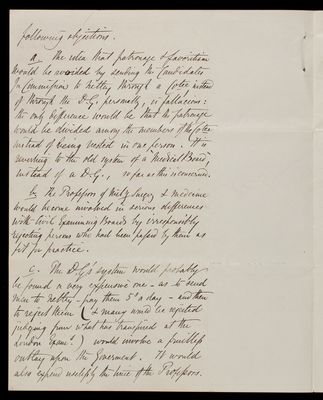 following objections.
a. The idea that patronage & favoritism
would be avoided by sending the Candidates
for Commissions to Netley through a Co'tee instead
of through the D.G. personally, is fallacious:
the only difference would be that the patronage
would be divided among the members of the Co'tee
instead of being vested in one person. It is
reverting to the old system of a "Medical Board,"
instead of a D.G., so far as this is concerned.
b. The Professors of Milit'y Surgery & medicine
would become involved in serious differences
with Civil Examining Boards by irresponsibly
rejecting persons who had been passed by them as
fit for practice.
c. The D.G's system would probably
be found a very expensive one - as to send
men to Netley - pay them 5s a day - and then
to reject them (& many would be rejected
judging from what has transpired at the
London Exam:) would involve a fruitless
outlay upon the Government. It would
also expend uselessly the time of the Professors.